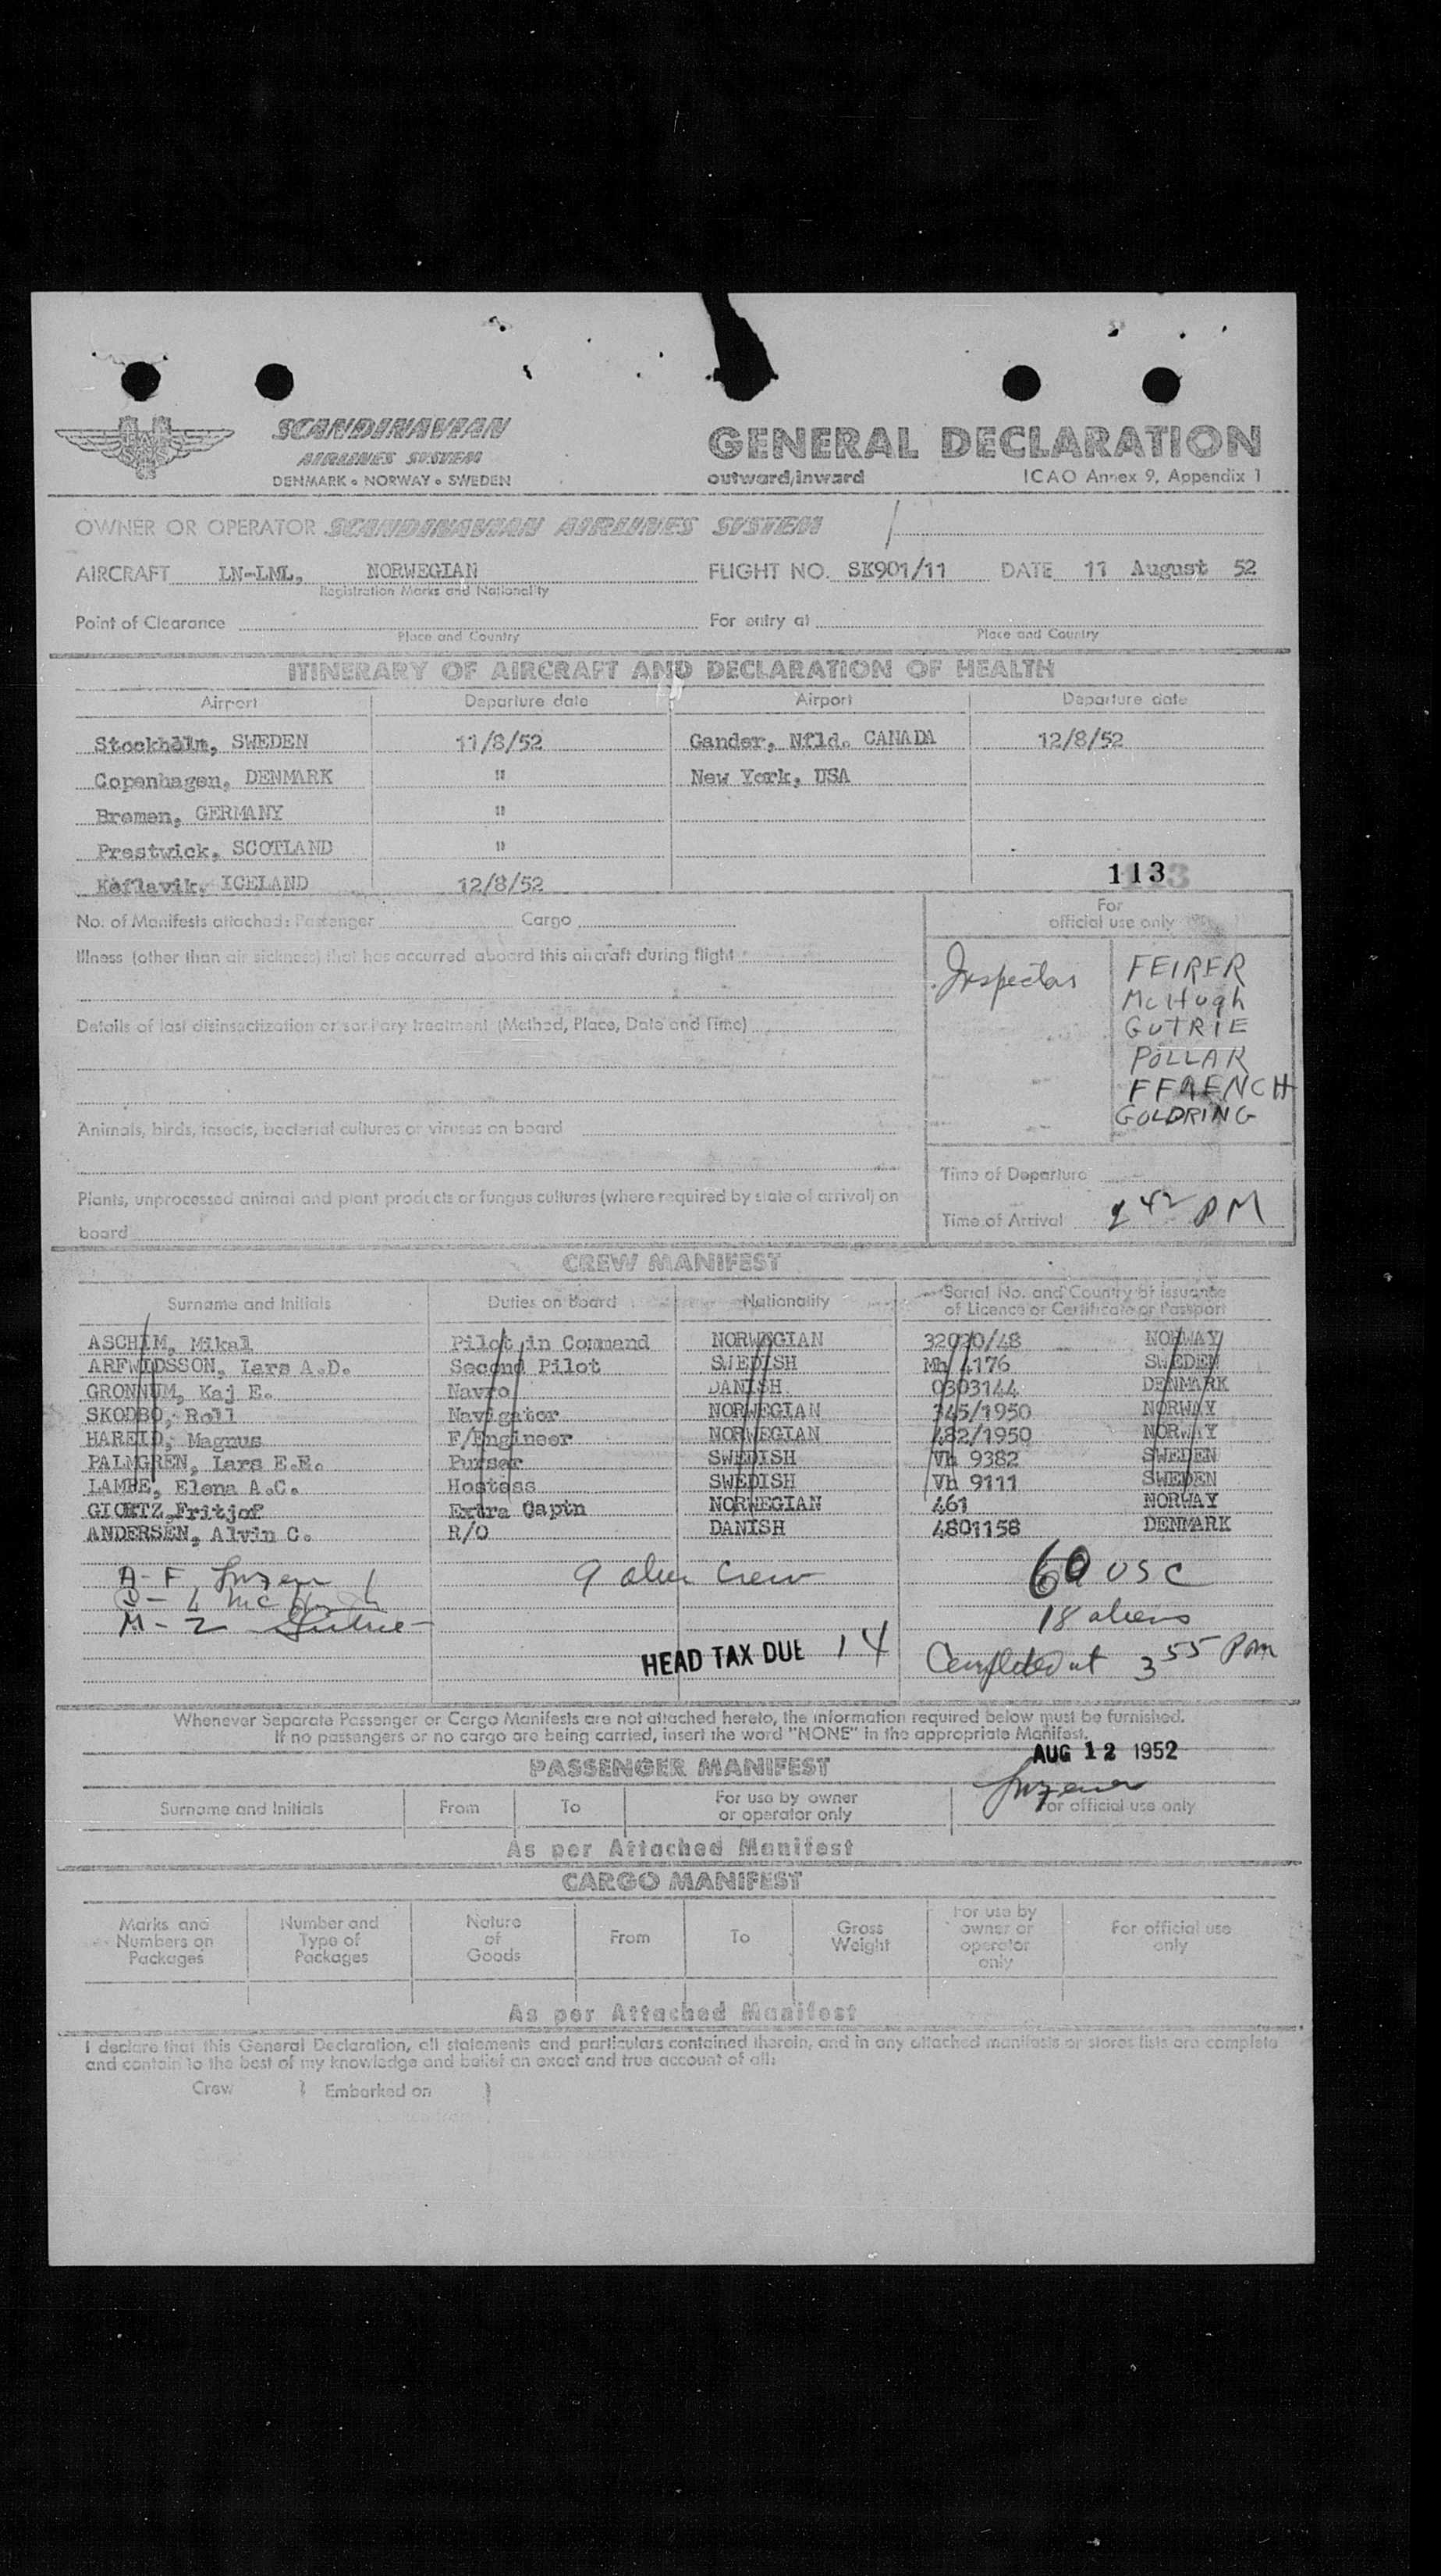 SCANDINAVIAN
AIRLINES SYSTEM
DENMARK • NORWAY • SWEDEN
GENERAL DECLARATION
outward/inward ICAO Annex 9, Appendix 1
OWNER OR OPERATOR SCANDINAVIAN AIRLINES SYSTEM
AIRCRAFT LN-LML, NORWEGIAN FLIGHT NO. SK901/11 DATE 11 August 52
Registration Marks and Nationality
Point of Clearance For entry at
Place and Country Place and Country
ITINERARY OF AIRCRAFT AND DECLARATION OF HEALTH
Airport Departure date Airport Departure date
Stockholm, SWEDEN 11/8/52 Gander, Nfld. CANADA 12/8/52
Copenhagen, DENMARK " New York, USA
Bremen, GERMANY "
Prestwick, SCOTLAND "
113
Keflavik, ICELAND 12/8/52
No. of Manifests attached: Passenger Cargo
For
official use only
Illness (other than air sickness) that has occurred aboard this aircraft during flight
Details of last disinsectization or sanitary treatment (Method, Place, Date and Time)
Animals, birds, insects, bacterial cultures or viruses on board
Plants, unprocessed animal and plant products or fungus cultures (where required by state of arrival) on
board
Inspectors FEIRER
McHugh
GUTRIE
POLLAR
FFRENCH
GOLDRING
Time of Departure
Time of Arrival 2 42 PM
CREW MANIFEST
Surname and Initials Duties on Board Nationality Serial No. and Country of issuance
of Licence or Certificate or Passport
ASCHIM, Mikal Pilot in Command NORWEGIAN 32020/48 NORWAY
ARFWIDSSON, Lars A.D. Second Pilot SWEDISH Mh 4176 SWEDEN
GRONNUM, Kaj E. Navro DANISH 0303144 DENMARK
SKODBO, Roll Navigator NORWEGIAN 345/1950 NORWAY
HAREID, Magnus F/Engineer NORWEGIAN 482/1950 NORWAY
PALMGREN, Lars E.E. Purser SWEDISH Vh 9382 SWEDEN
LAMPE, Elena A.C. Hostess SWEDISH Vh 9111 SWEDEN
GIORTZ, Fritjof Extra Captn NORWEGIAN 461 NORWAY
ANDERSEN, Alvin C. R/O DANISH 4801158 DENMARK
A-F 9 alien Crew 60 USC
M-2 18 aliens
HEAD TAX DUE 14 Completed at 3 55 Pm
Whenever Separate Passenger or Cargo Manifests are not attached hereto, the information required below must be furnished.
If no passengers or no cargo are being carried, insert the word "NONE" in the appropriate Manifest.
AUG 12 1952
PASSENGER MANIFEST
Surname and Initials From To For use by owner
or operator only For official use only
As per Attached Manifest
CARGO MANIFEST
Marks and
Numbers on
Packages Number and
Type of
Packages Nature
of
Goods From To Gross
Weight For use by
owner or
operator
only For official use
only
As per Attached Manifest
I declare that this General Declaration, all statements and particulars contained therein, and in any attached manifests or stores lists are complete
and contain to the best of my knowledge and belief an exact and true account of all:
Crew } Embarked on }